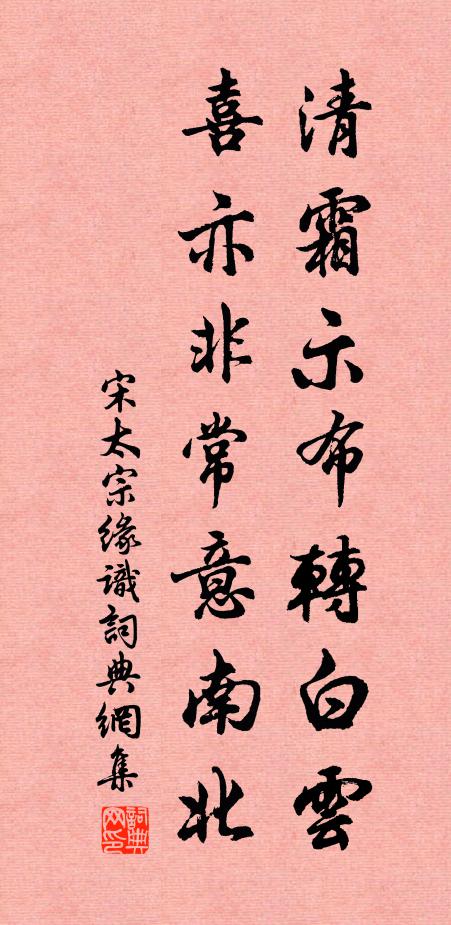 清霜示布轉白雲
喜亦非常意南北
宋太宗緣識詞典網集
詞典网印